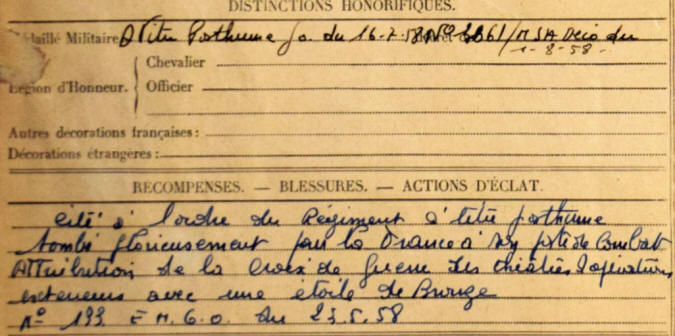 DISTINCTIONS HONORIFIQUES.
Médaillé Militaire A titre Posthume J.O. du 16-7-58 N° 2861/MSA Déco du
1-8-58
Chevalier
Légion d'Honneur. Officier
Autres décorations françaises :
Décorations étrangères :
RECOMPENSES. — BLESSURES. — ACTIONS D'ÉCLAT.
Cité à l'ordre du Régiment à titre posthume
tombé glorieusement pour la France à son poste de Combat
Attribution de la Croix de Guerre des théâtres d'opérations
exterieurs avec une étoile de Bronze
N° 193 E.M.G.O. du 23.5.58